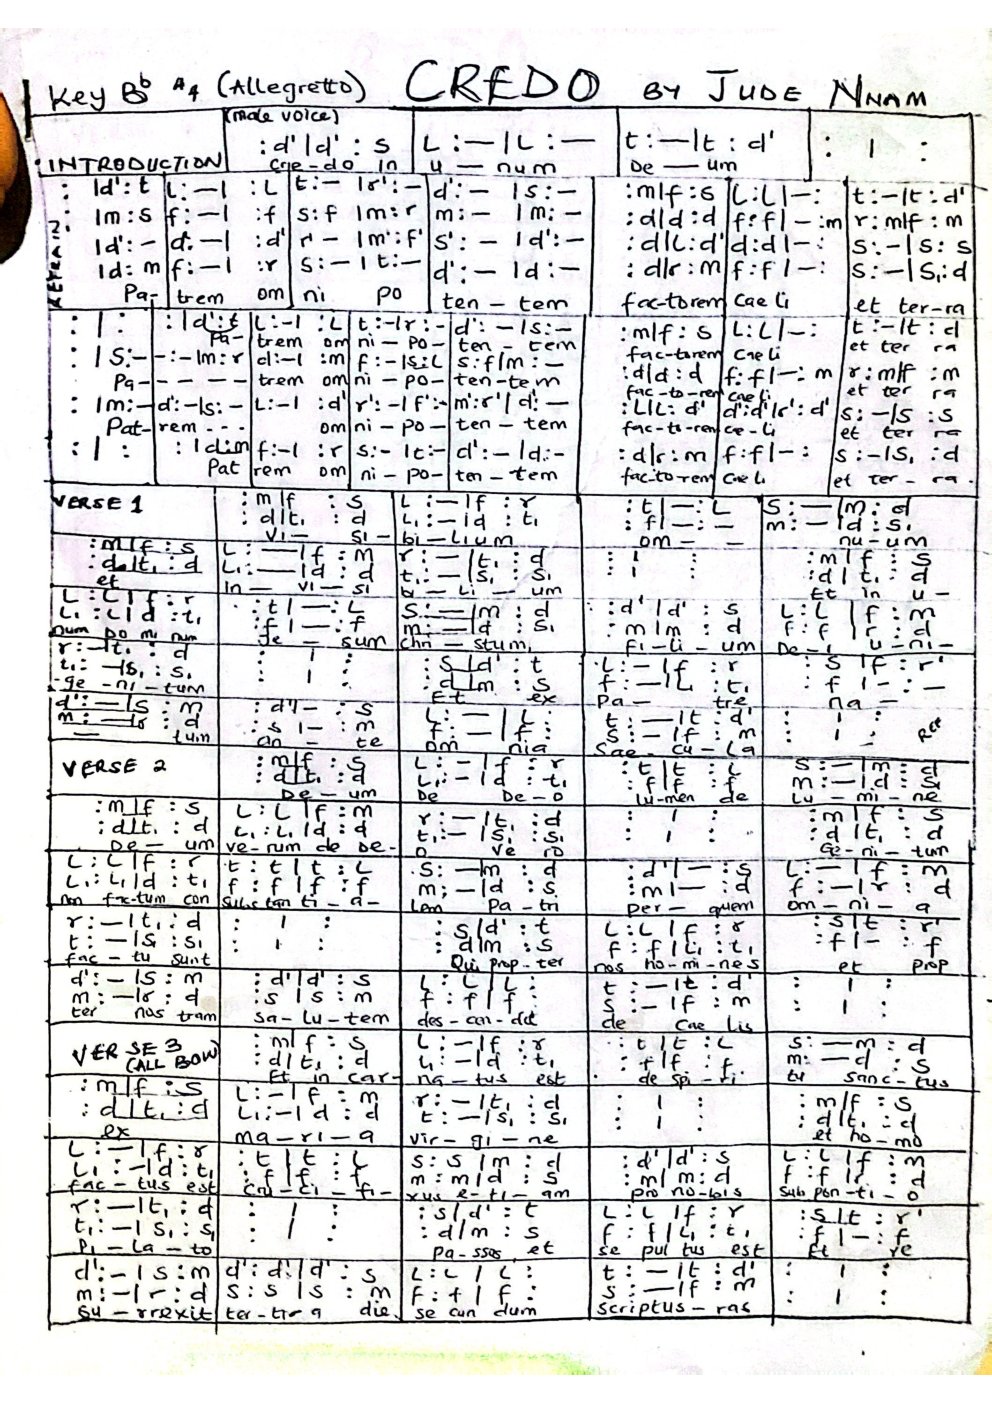 Key Bb 4/4 (Allegretto) CREDO BY JUDE NNAM
(male voice)
: d' | d' : s L : — | L : — t : — | t : d' : | :
INTRODUCTION Cre - do in u — num De — um
REFRAIN
: | d' : t L : — | : L t : – | r' : – d' : – | s : – : m | f : s L : L | – : t : – | t : d'
| m : s f : – | : f s : f | m : r m : – | m : – : d | d : d f : f | – : m r : m | f : m
| d' : – d' : – | : d' r – | m' : f' s' : – | d' : – : d | L : d' d : d | – : s : – | s : s
| d : m f : – | : r s : – | t : – d' : – | d : – : d | r : m f : f | – : s : – | s, : d
Pa- trem om ni po ten - tem fac-torem cae li et ter-ra
: | : : | d' : t L : – | : L t : – | r : – d' : – | s : – : m | f : s L : L | – : t : – | t : d
Pa- trem om ni - po - ten - tem fac-torem cae li et ter ra
: | s : – – : – | m : r d : – | : m f : – | s : L s : f | m : – : d | d : d f : f | – : m r : m | f : m
Pa - - - - - trem om ni - po - ten-tem fac-to-rem cae li et ter ra
: | m : – d' : – | s : – L : – | : d' r' : – | f' : – m' : r' | d' : – : L | L : d' d' : d' | r' : d' s : – | s : s
Pat-rem - - - om ni - po - ten - tem fac-to-rem cae - li et ter ra
: | : : | d : m f : – | : r s : – | t : – d' : – | d : – : d | r : m f : f | – : s : – | s, : d
Pat rem om ni - po - ten - tem fac-to rem cae li et ter - ra.
VERSE 1 : m | f : s L : — | f : r : t | — : L s : — | m : d
: d | t, : d L, : — | d : t, : f | – : – m : — | d : s,
Vi — si - bi - lium om — — nu - um
: m | f : s L : — | f : m r : — | t, : d : | : : m | f : s
: d | t, : d L, : — | d : d t, : – | s, : s, : | : : d | t, : d
et in — vi — si bi — li — um Et in u -
L : L | f : r : t | — : L s : — | m : d : d' | d' : s L : L | f : m
L, : L | d : t, : f | — : f m : — | d : s, : m | m : d f : f | r : d
num Do mi num Je — sum chri — stum, Fi - li - um De - i u - ni -
r : – | t, : d : | : : s | d' : t L : – | f : r : s | f : r'
t, : – | s, : s, : | : : d | m : s f : — | L, : t, : f | – : –
- ge - ni - tum Et ex Pa — tre na —
d' : — | s : m : d' | – : s L : — | L : t : — | t : d' : | :
m : — | r : d : s | – : m f : — | f : s : — | f : m : | :
— tum an — te om nia Sae - cu - la Ref
VERSE 2 : m | f : s L : – | f : r : t | t : L s : — | m : d
: d | t, : d L, : – | d : t, : f | f : f m : — | d : s,
De — um De De - o lu-men de lu - mi - ne
: m | f : s L : L | f : m r : — | t, : d : | : : m | f : s
: d | t, : d L, : L, | d : d t, : — | s, : s, : | : : d | t, : d
De — um ve - rum de De - o ve ro Ge - ni - tum
L : L | f : r t : t | t : L s : — | m : d : d' | — : s L : — | f : m
L, : L, | d : t, f : f | f : f m : — | d : s : m | — : d f : – | r : d
non fac-tum con Subs tan ti - a - lem Pa - tri per - quem om - ni - a
r : – | t, : d : | : : s | d' : t L : L | f : r : s | t : r'
t : – | s, : s, : | : : d | m : s f : f | L, : t, : f | – : f
fac - tu sunt Qui prop - ter nos ho - mi - nes et prop
d' : – | s : m : d' | d' : s L : L | L : t : – | t : d' : | :
m : – | r : d : s | s : m f : f | f : s : – | f : m : | :
ter nos tram sa - lu - tem des - cen - dit de Cae lis
VERSE 3 : m | f : s L : – | f : r : t | t : L s : — m : d
(ALL BOW) : d | t, : d L, : – | d : t, : f | f : f m : — d : s
Et in car- na - tus est de spi - ri - tu sanc - tus
: m | f : s L : – | f : m r : – | t, : d : | : : m | f : s
: d | t, : d L, : – | d : d t : – | s, : s, : | : : d | t, : d
ex ma - ri - a vir - gi - ne et ho - mo
L : – | f : r : t | t : L s : s | m : d : d' | d' : s L : L | f : m
L, : – | d : t, : f | f : f m : m | d : s : m | m : d f : f | r : d
fac - tus est Cru - ci - fi - xus e - ti - am pro no-bis sub pon - ti - o
r : – | t, : d : | : : s | d' : t L : L | f : r : s | t : r'
t, : – | s, : s, : | : : d | m : s f : f | L, : t, : f | – : f
Pi - La - to pa - ssos, et se pul tus est Et re
d' : – | s : m d' : d' | d' : s L : L | L : t : — | t : d' : | :
m : – | r : d s : s | s : m f : f | f : s : — | f : m : | :
su - rrexit ter - tir a die. se cun dum scriptus - ras